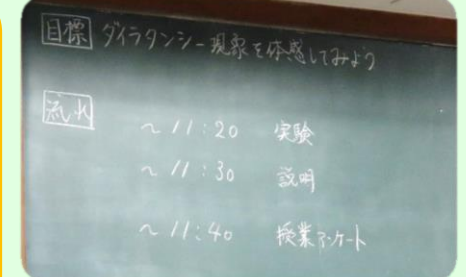 目標 ダイラタンシー現象を体感してみよう
流れ
～11:20 実験
～11:30 説明
～11:40 授業アンケート